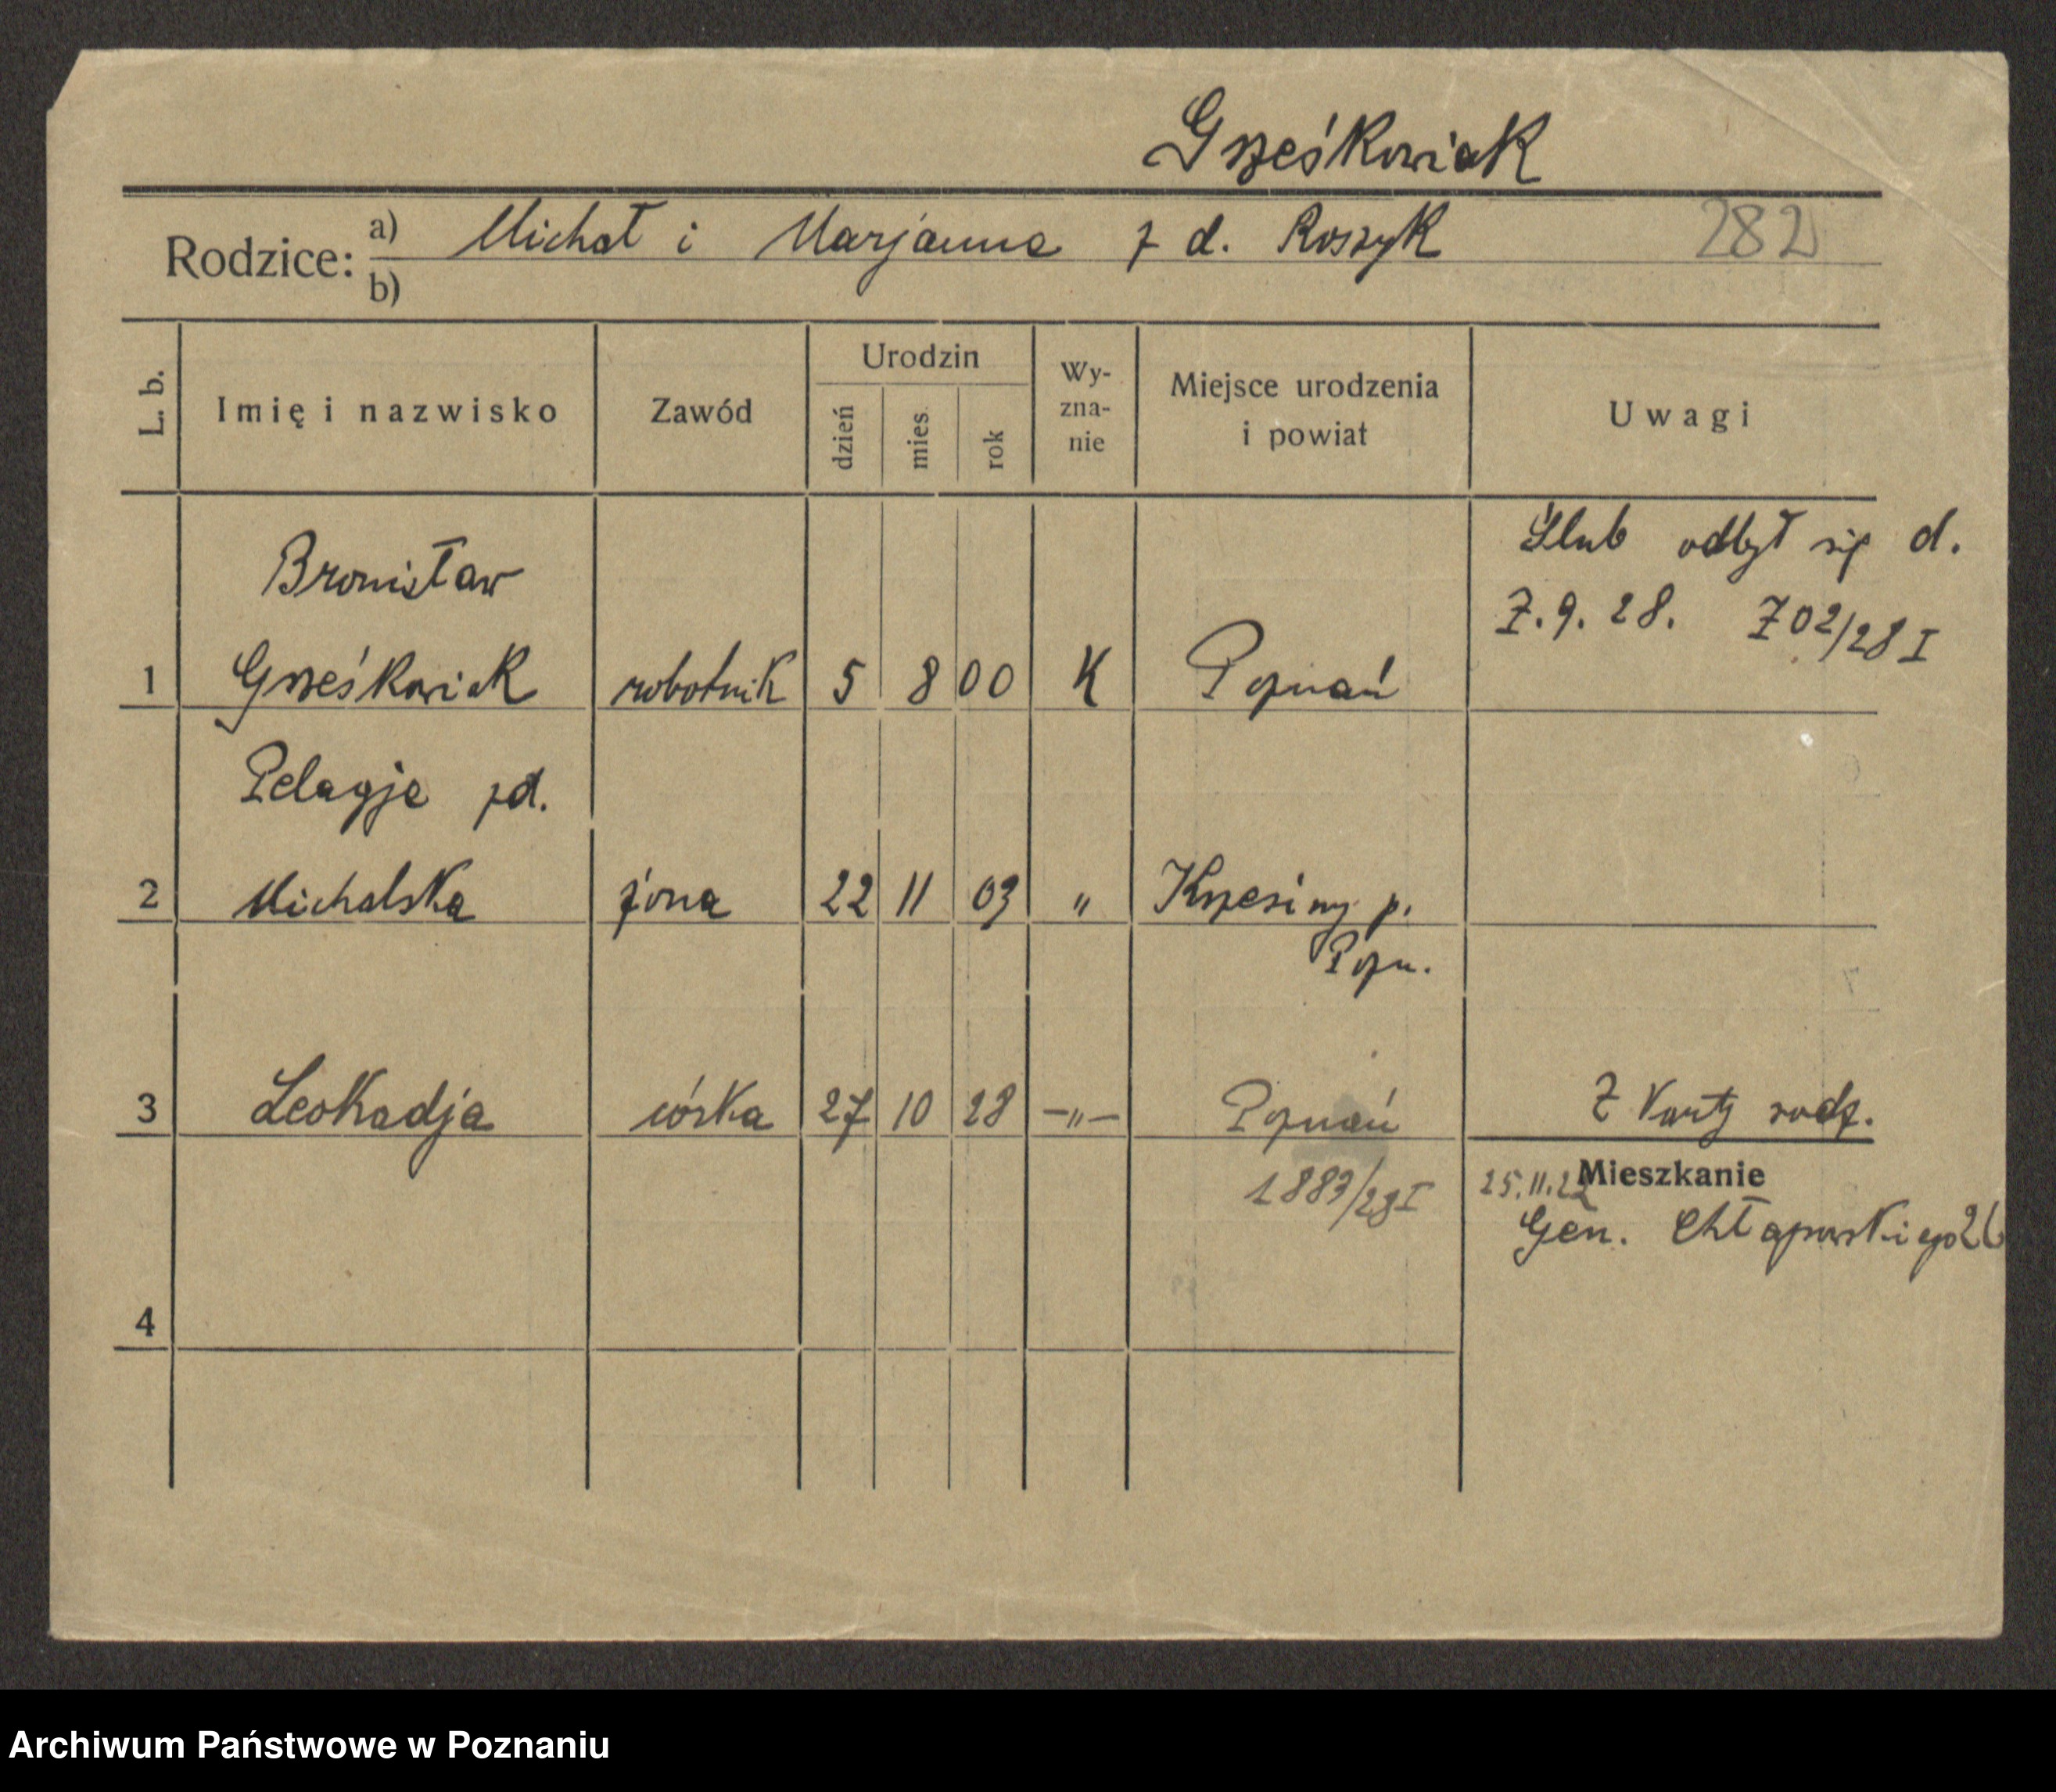 Grześkowiak
Rodzice: a) Michał i Marjanna z d. Roszyk 282
b)
L. b. Imię i nazwisko Zawód Urodzin dzień mies. rok Wy-zna-nie Miejsce urodzenia i powiat Uwagi
Ślub odbył się d.
7.9.28. 702/28 I
Bronisław
1 Grześkowiak robotnik 5 8 00 K Poznań
Pelagja zd.
2 Michalska żona 22 11 03 " Krzesiny p.
Pozn.
3 Leokadja córka 27 10 28 -"- Poznań Z Karty rodz.
1883/28 I
Mieszkanie
25.11.
Gen. Chłapowskiego
4
Archiwum Państwowe w Poznaniu